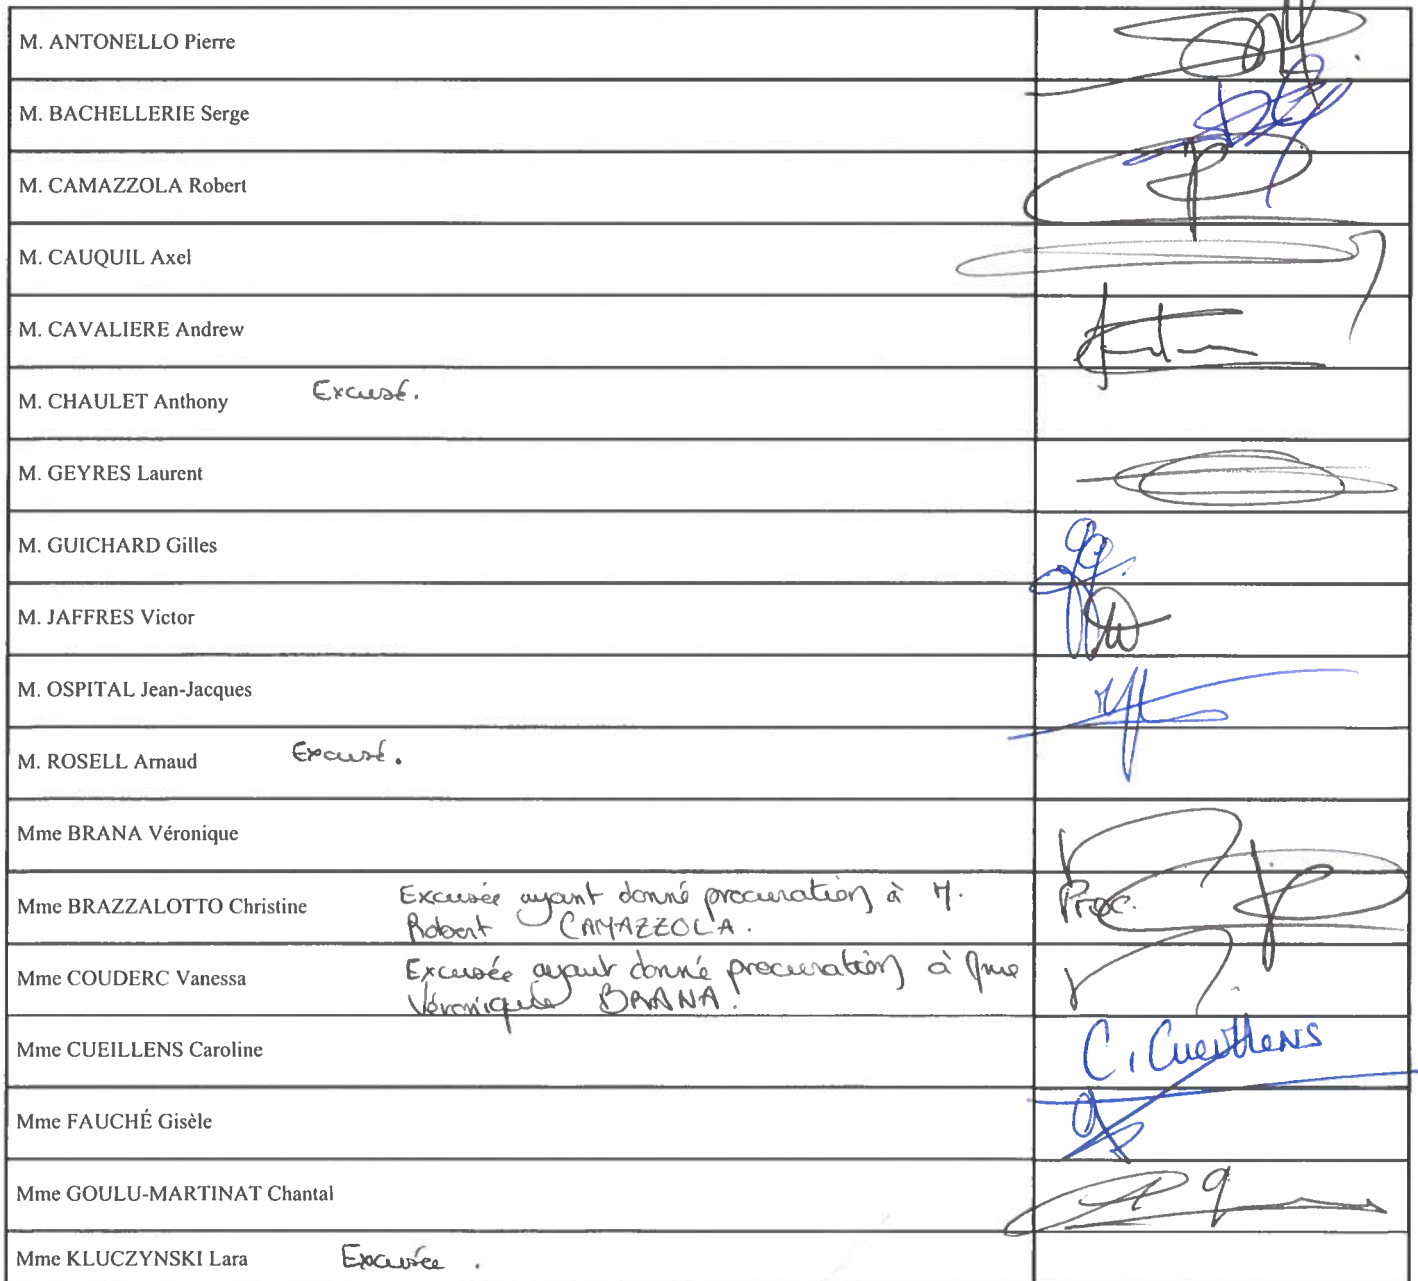 M. ANTONELLO Pierre
M. BACHELLERIE Serge
M. CAMAZZOLA Robert
M. CAUQUIL Axel
M. CAVALIERE Andrew
M. CHAULET Anthony Excusé.
M. GEYRES Laurent
M. GUICHARD Gilles
M. JAFFRES Victor
M. OSPITAL Jean-Jacques
M. ROSELL Arnaud Excusé.
Mme BRANA Véronique
Mme BRAZZALOTTO Christine Excusée ayant donné procuration à M. Proc.
Robert CAMAZZOLA.
Mme COUDERC Vanessa Excusée ayant donné procuration à Mme
Véronique BRANA.
Mme CUEILLENS Caroline C. Cueillens
Mme FAUCHÉ Gisèle
Mme GOULU-MARTINAT Chantal
Mme KLUCZYNSKI Lara Excusée.